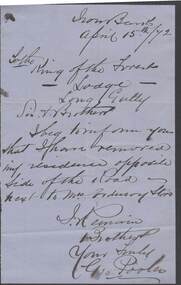 Iron Bark
April 15th/72
To the
King of the Forest
Lodge
Long Gully
Sir & Brother
I beg to inform you
that I have removed
my residence opposite
side of the Road
next to Mr Store
I Remain
Brother
Yours truly